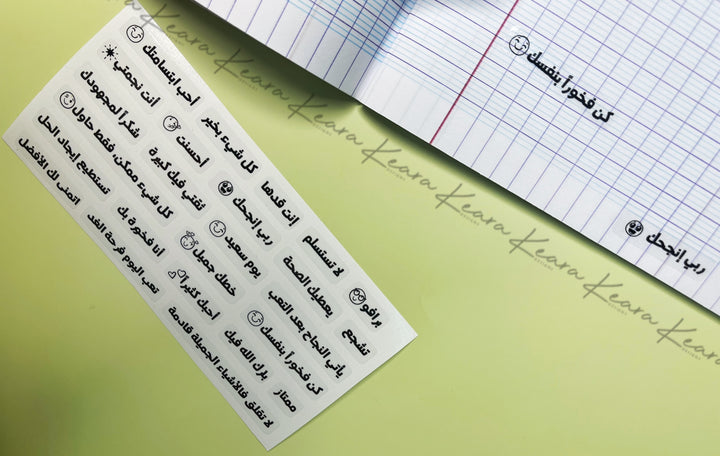 برافو
لا تستسلم
انت قدها
كل شيء بخير
احب ابتسامتك
تشجع
يعطيك الصحة
ربي إنجحك
أحسنت
انت نجمتي
يأتي النجاح بعد التعب
يوم سعيد
ثقتي فيك كبيرة
شكرا لمجهودك
كن فخوراً بنفسك
خطك جميل
كل شيء ممكن، فقط حاول
ممتاز
برك الله فيك
احبك كثيرا
انا فخورة بك
تستطيع إيجاد الحل
لا تقلق فالأشياء الجميلة قادمة
تعب اليوم فرحة الغد
اتمنى لك الأفضل
كن فخوراً بنفسك
ربي إنجحك
Keara Keara Keara Keara Keara Keara Keara Keara Keara